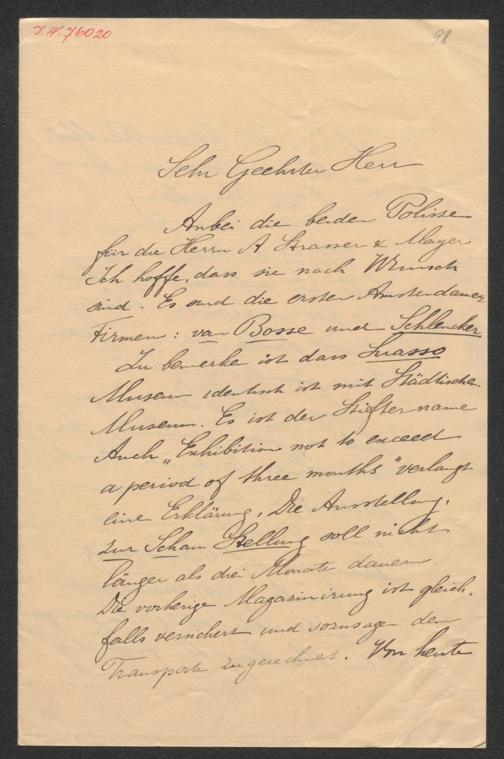 I.N. 76020
98
Sehr Geehrter Herr
Anbei die beiden Polisse
für die Herrn A Strasser & Mayer
Ich hoffe, dass sie nach Wunsch
sind. Es sind die ersten Amsterdamer
Firmen: van Bosse und Schlencker
Zu bemerke ist dass Suasso
Museum identisch ist mit Städtischen
Museum. Es ist der Stifter name
Auch „Exhibition not to exceed
a period of three months" verlangt
eine Erklärung. Die Ausstellung,
zur Schau Stellung soll nicht
länger als drei Monate dauern
Die vorherige Magasinirung ist gleich.
falls versichert und sozusagen dem
Transporte zugerechnet. Von heute